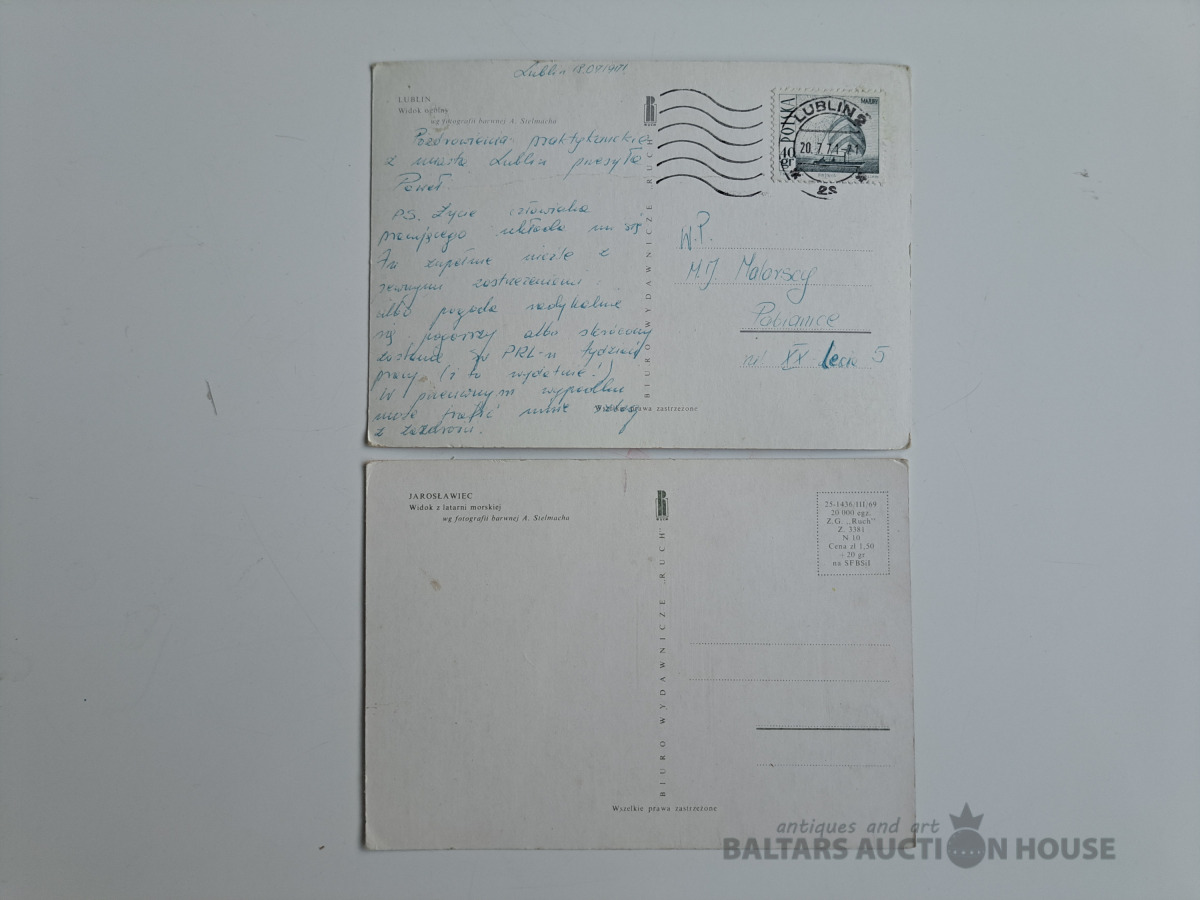 Lublin 18.07.1971
LUBLIN
Widok ogólny
wg fotografii barwnej A. Stelmacha
Pozdrowienia praktykanckie
z miasta Lublin przesyła
Paweł.
PS. Życie człowieka
pracującego układa mi się
zupełnie nieźle z
pewnymi zastrzeżeniami:
albo pogoda radykalnie
się pogorszy albo skrócony
zostanie w PRL-u tydzień
pracy (i to wydatnie!)
W przeciwnym wypadku
może trafić mnie szlag
z zazdrości.
BIURO WYDAWNICZE RUCH
Wszelkie prawa zastrzeżone
POLSKA
40 gr
MAZURY
LUBLIN 2
20.7.71-21
es
W.P.
M.J. Malarscy
Pabianice
ul. XX lecia 5
JAROSŁAWIEC
Widok z latarni morskiej
wg fotografii barwnej A. Stelmacha
RUCH
BIURO WYDAWNICZE „RUCH"
25-1436/III/69
20 000 egz.
Z.G. „Ruch"
Z. 3381
N 10
Cena zł 1,50
+ 20 gr
na SFBSiI
Wszelkie prawa zastrzeżone
antiques and art
BALTARS AUCTION HOUSE